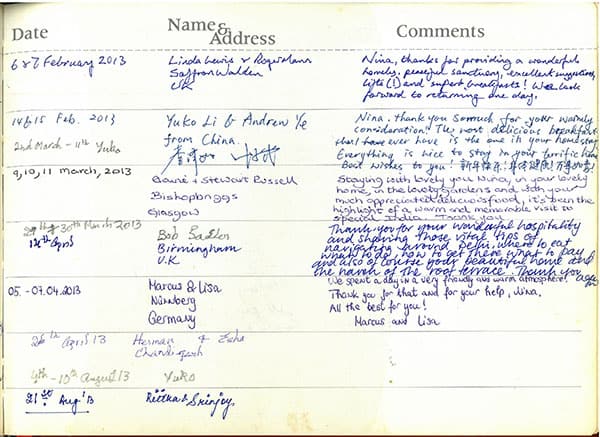 Date Name & Address Comments
6 & 7 February 2013
Linda Lewis &
Saffron Walden
UK
Nina, thanks for providing a wonderful
homely, peaceful sanctuary, excellent suggestions,
lifts (!) and superb breakfasts! We look
forward to returning one day.
14 & 15 Feb. 2013
2nd March - 11th Yuko
Yuko Li & Andrew Ye
from China.
Nina, thank you so much for your warmly
consideration! The most delicious breakfast
that I have ever have is the one in your homestay
Everything is nice to stay in your terrific home
Best wishes to you!
9, 10, 11 March, 2013
& Stewart Russell
Bishopbriggs
Glasgow
Staying with lovely you Nina, in your lovely
home, in the lovely gardens and with your
much appreciated delicious food, it's been the
highlight of a warm and memorable visit to
special India. Thank you
30th March 2013
April
Bob
Birmingham
U.K.
Thank you for your wonderful hospitality
and sharing those vital tips of
navigating around Delhi, where to eat
what to do, how to get there what to pay
and also of course your beautiful home and
the haven of the roof terrace. Thank you
05. - 07.04.2013
Marcus & Lisa
Nürnberg
Germany
We spent a day in a very friendly and warm atmosphere!
Thank you for that and for your help, Nina.
All the best for you!
Marcus and Lisa
26th April 13
Herman &
Chandigarh
9th - 10th August 13
Yuko
21st Aug' 13